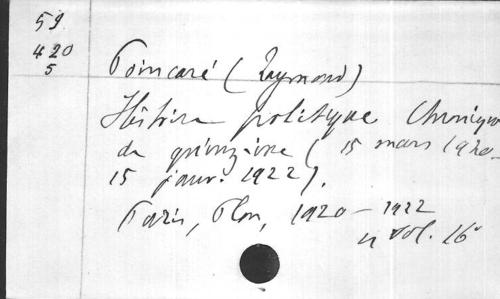 59
420
5
Poincaré (Raymond)
Histoire politique Chroniques
de quinzaine (15 mars 1920-
15 janv. 1922).
Paris, Plon, 1920-1922
4 vol. 16°